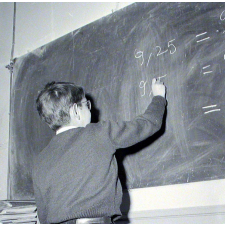 9,25 =
9,5 =
=